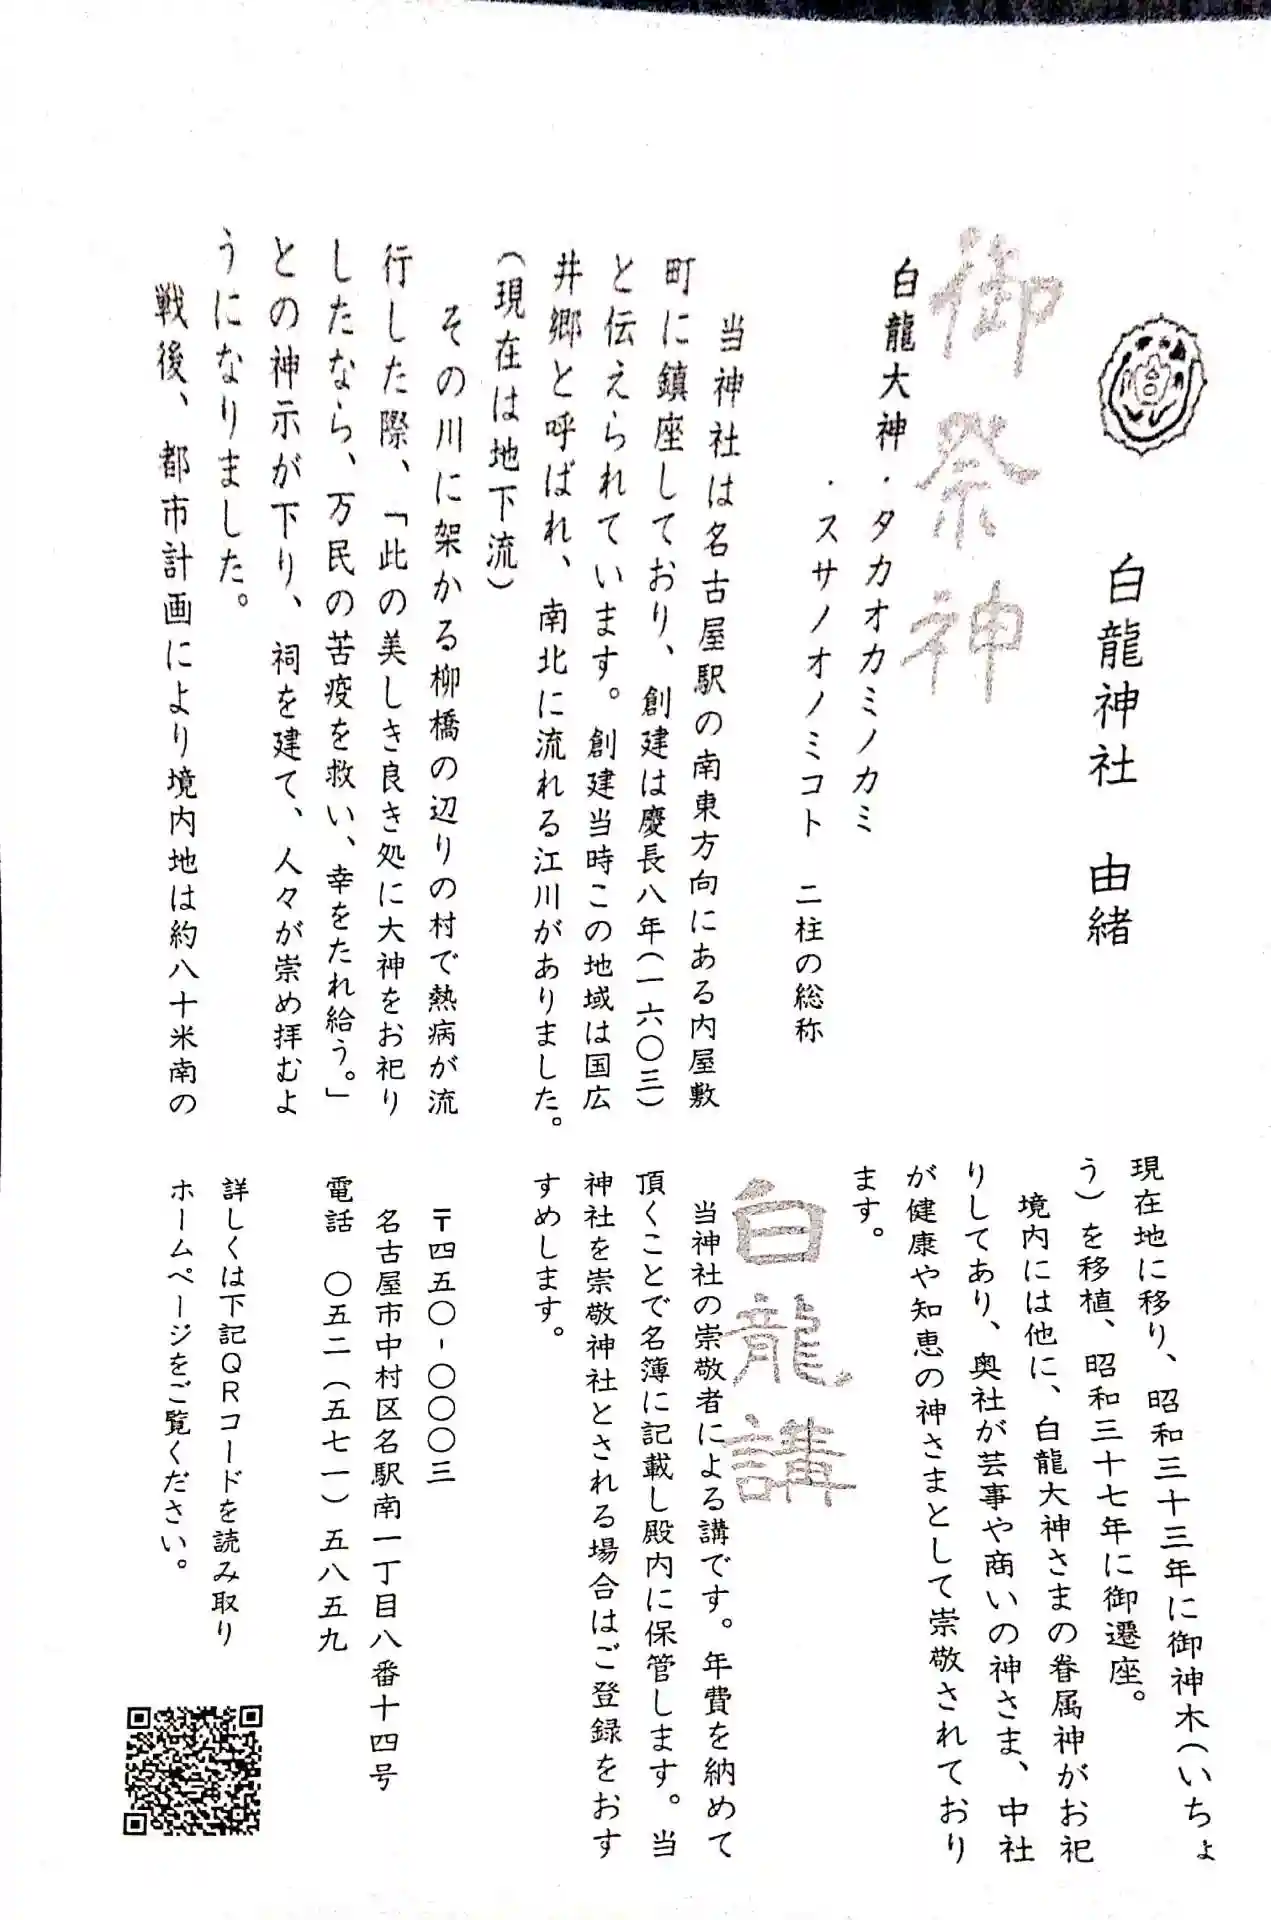 白龍神社　由緒
御祭神
白龍大神・タカオカミノカミ
・スサノオノミコト　二柱の総称
当神社は名古屋駅の南東方向にある内屋敷
町に鎮座しており、創建は慶長八年（一六〇三）
と伝えられています。創建当時この地域は国広
井郷と呼ばれ、南北に流れる江川がありました。
（現在は地下流）
その川に架かる柳橋の辺りの村で熱病が流
行した際、「此の美しき良き処に大神をお祀り
したなら、万民の苦疫を救い、幸をたれ給う。」
との神示が下り、祠を建て、人々が崇め拝むよ
うになりました。
戦後、都市計画により境内地は約八十米南の
現在地に移り、昭和三十三年に御神木（いちょ
う）を移植、昭和三十七年に御遷座。
境内には他に、白龍大神さまの眷属神がお祀
りしてあり、奥社が芸事や商いの神さま、中社
が健康や知恵の神さまとして崇敬されており
ます。
白龍講
当神社の崇敬者による講です。年費を納めて
頂くことで名簿に記載し殿内に保管します。当
神社を崇敬神社とされる場合はご登録をおす
すめします。
〒四五〇-〇〇〇三
名古屋市中村区名駅南一丁目八番十四号
電話　〇五二（五七一）五八五九
詳しくは下記QRコードを読み取り
ホームページをご覧ください。